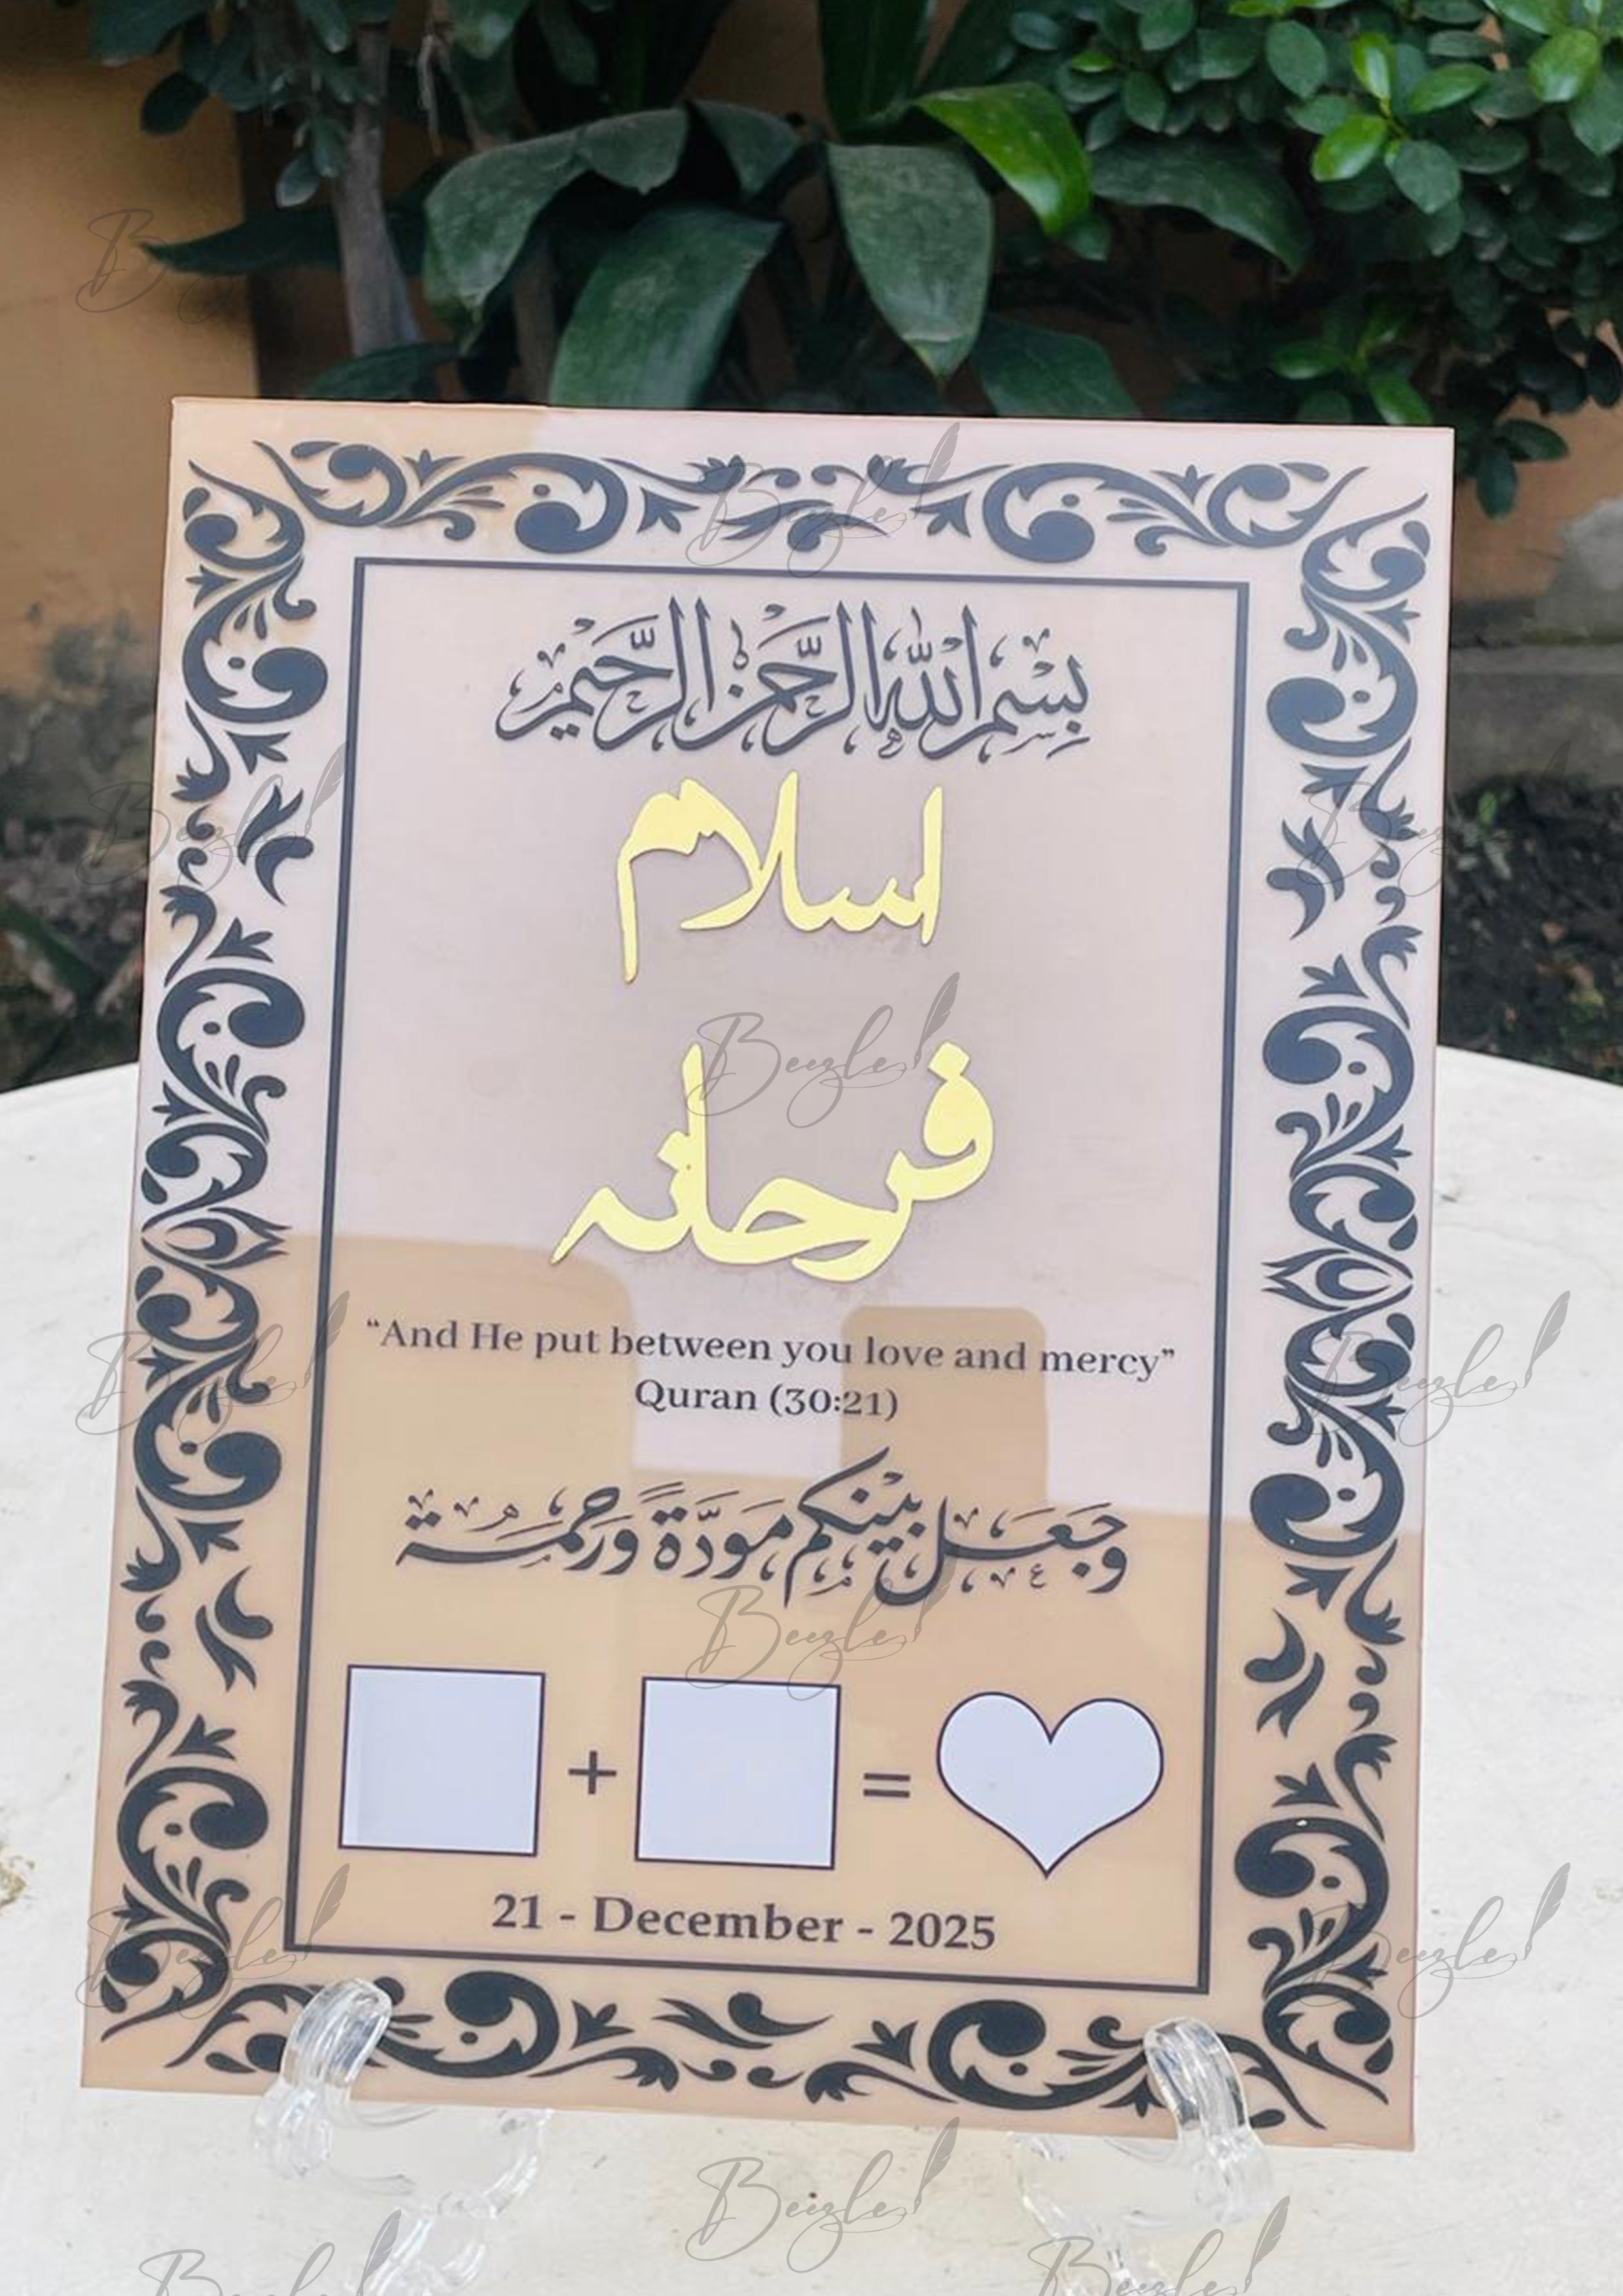 بِسْمِ اللهِ الرَّحْمٰنِ الرَّحِيْمِ
اسلام
فرحانہ
“And He put between you love and mercy”
Quran (30:21)
وَجَعَلَ بَيْنَكُم مَوَدَّةً وَرَحْمَةً
+ =
21 - December - 2025
Beezle